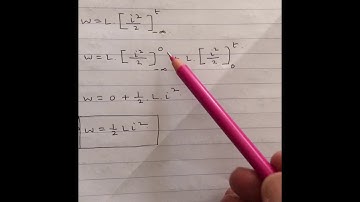 W = L · [i²/2]ᵗ₋∞
W = L · [i²/2]⁰₋∞ L · [i²/2]ᵗ₀
W = 0 + 1/2 L · i²
W = 1/2 L i²